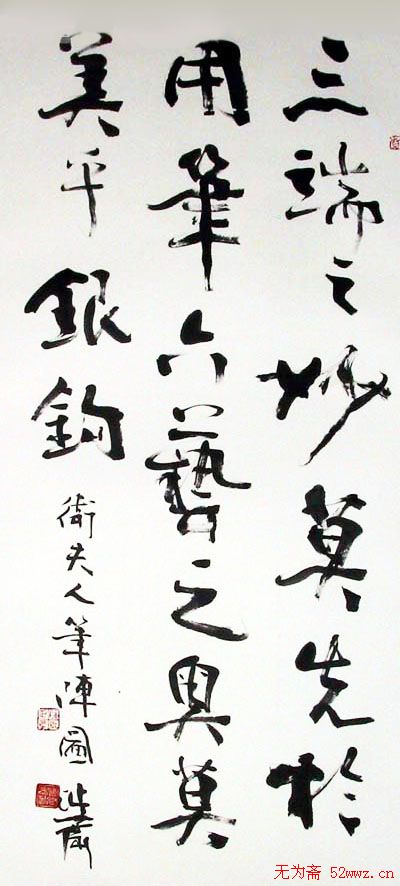 三端之妙莫先於
用筆六藝之奥莫
美乎銀鉤
衛夫人筆陣圖
无为斋 52wwz.cn